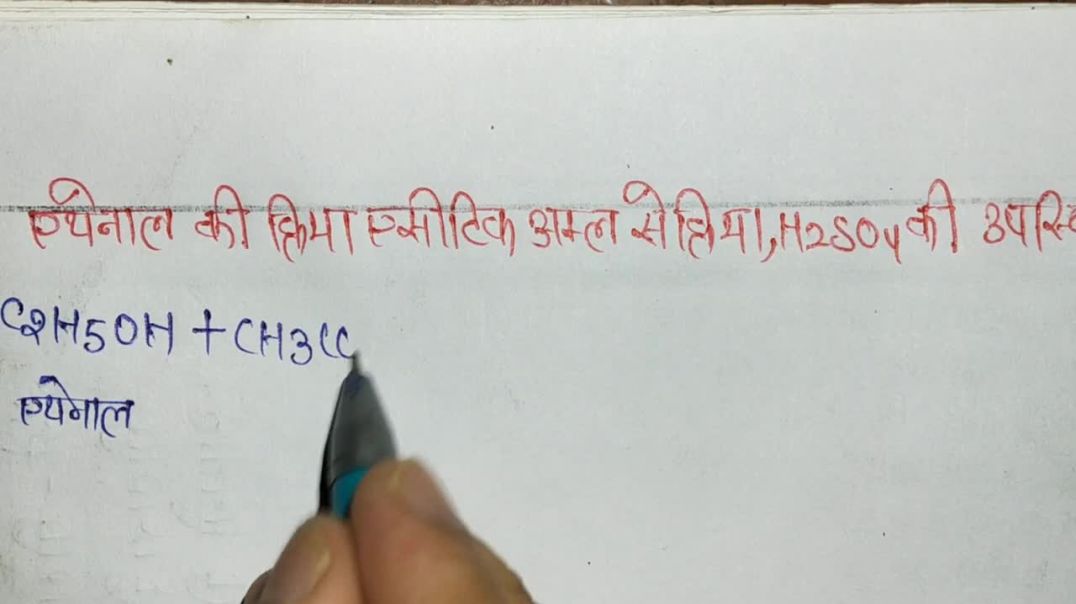 एथेनाल की क्रिया एसीटिक अम्ल से क्रिया,H2SO4 की उपस्थि
C2H5OH + CH3CO
एथेनाल